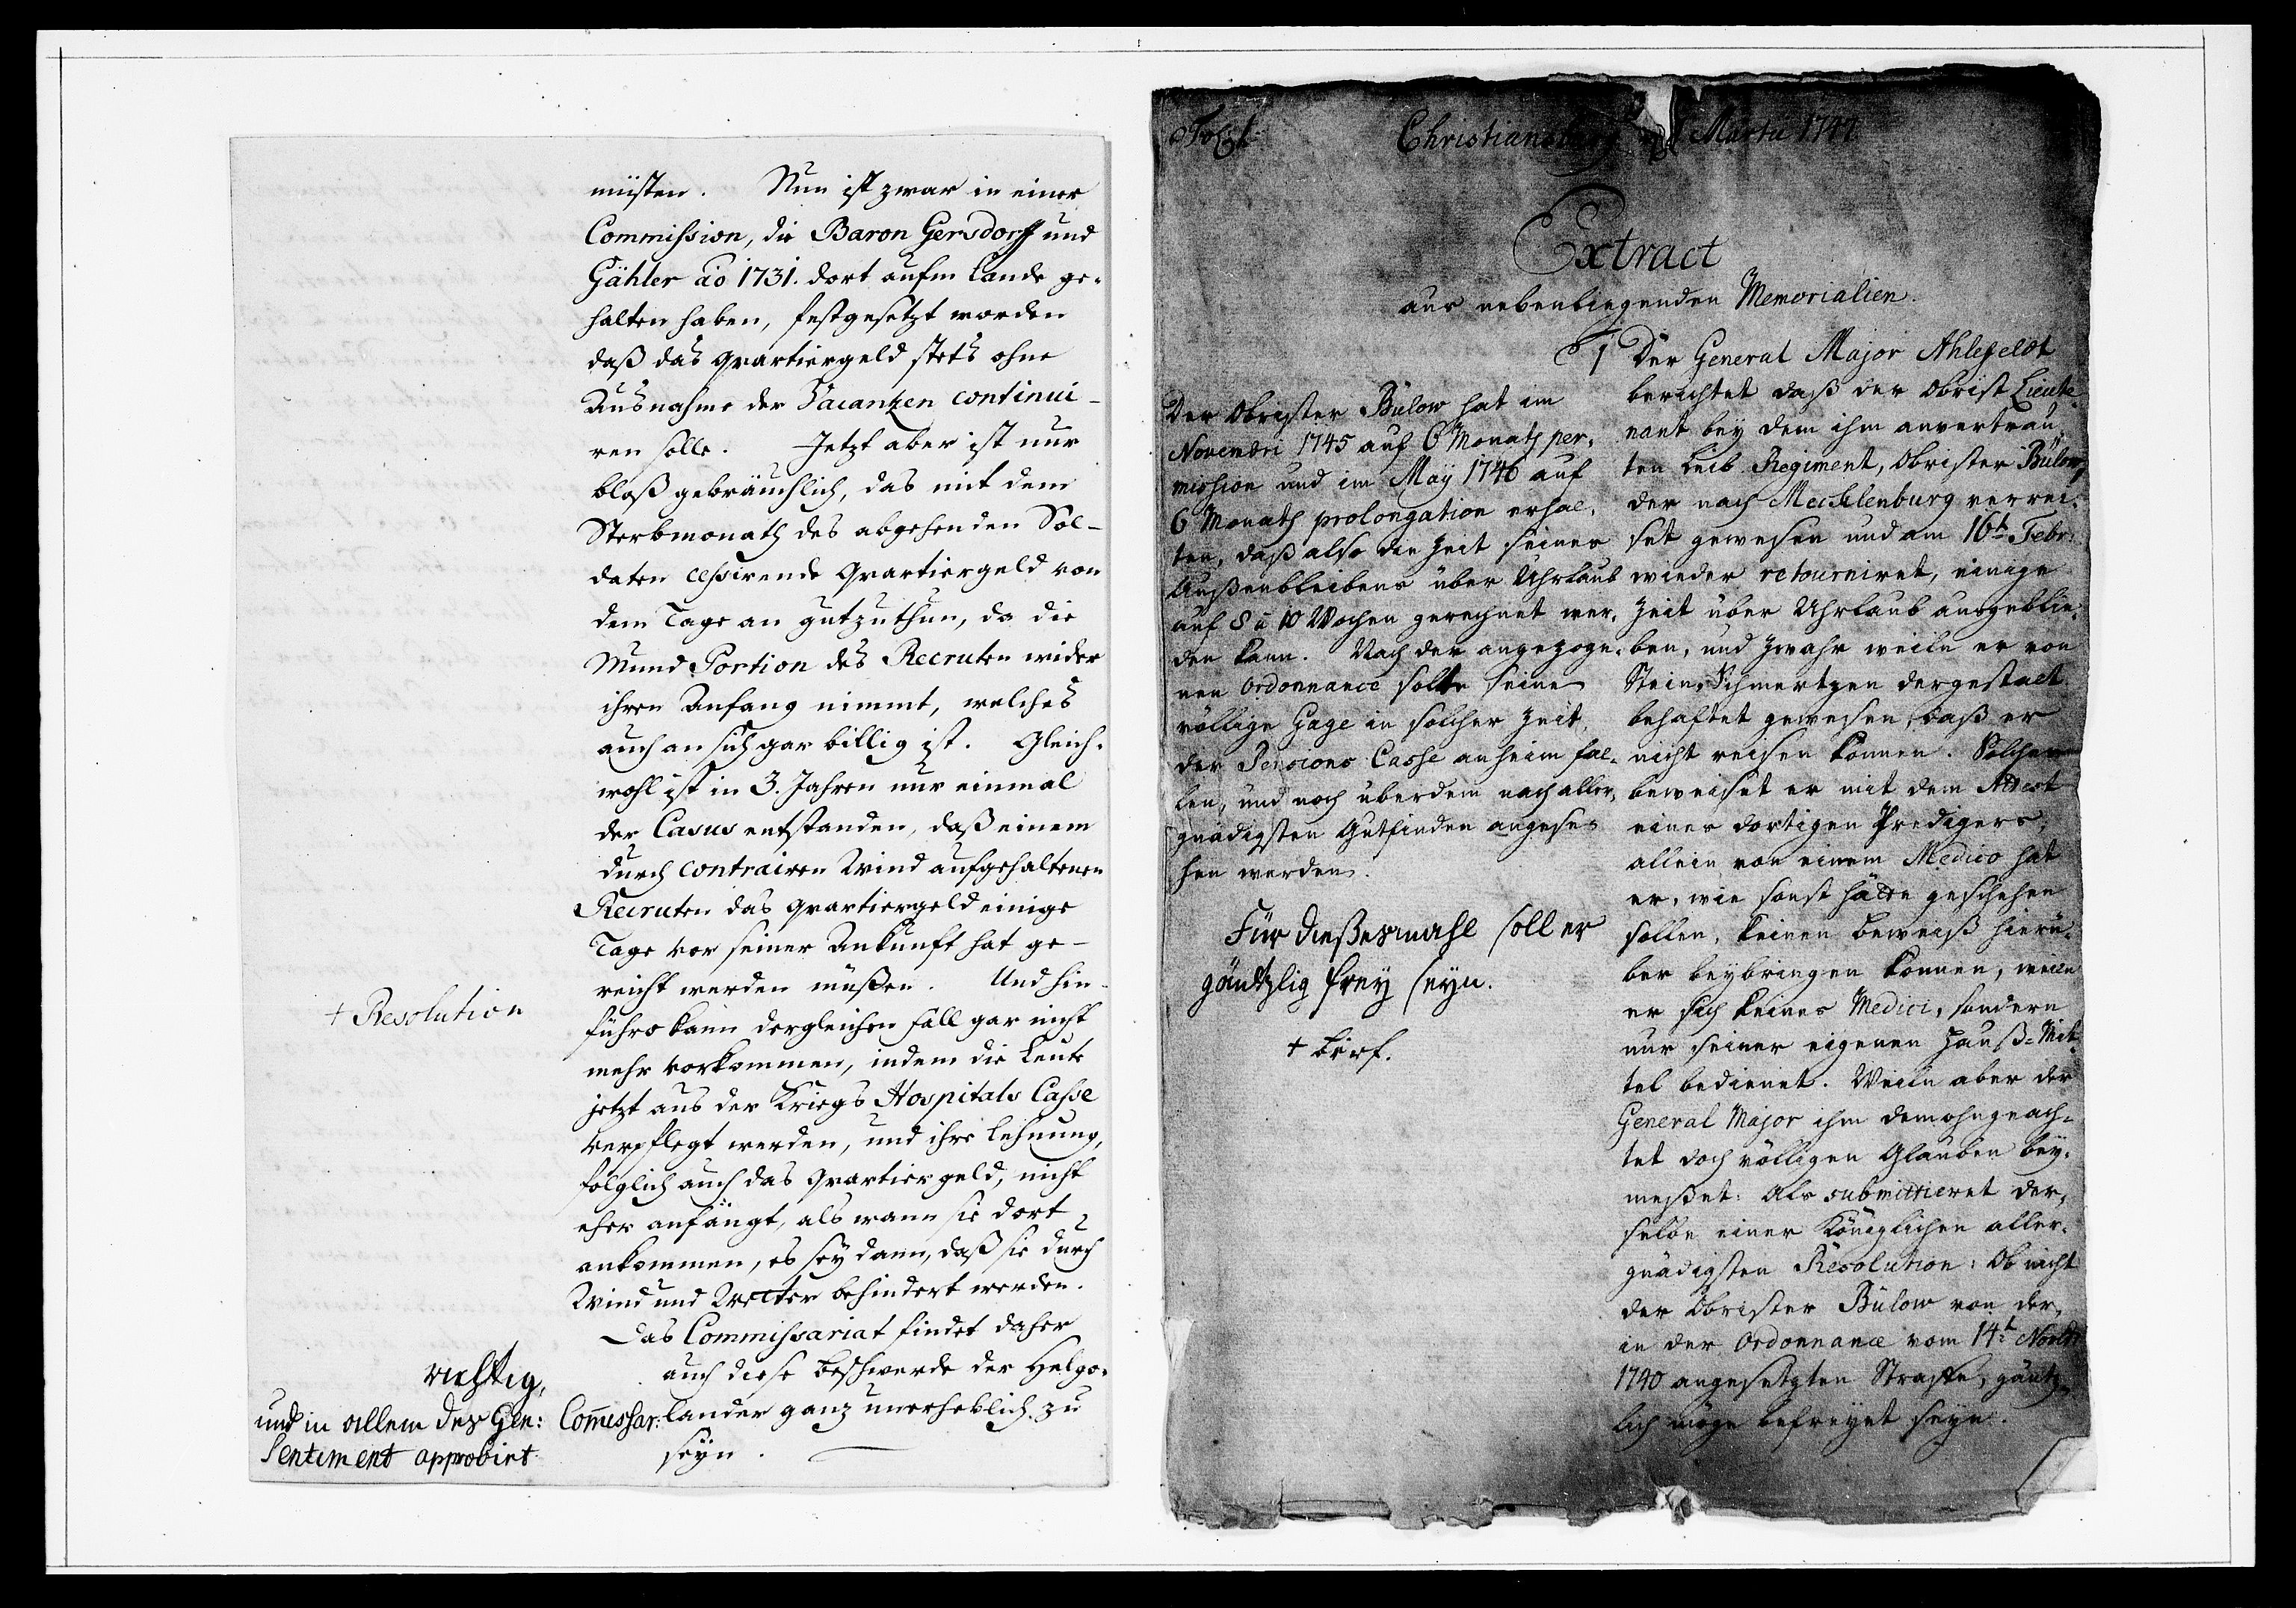 müsten. Nun ist zwar in einer
Commission, die Baron Gersdorff und
Gähler ao 1731. dort aufm Lande ge-
halten haben, festgesetzt worden
daß das quartiergeld stets ohne
Ausnahme der Vacantzen continui-
ren solle. Jetzt aber ist nur
bloß gebräuchlich, das mit dem
Sterbmonath des abgehenden Sol-
daten cessirende Quartiergeld von
dem Tage an gutzuthun, da die
Mund Portion des Recruten wider
ihren Anfang nimmt, welches
auch an sich gar billig ist. Gleich-
wohl ist in 3. Jahren nur einmal
der Casus entstanden, daß einem
durch contrairen Wind aufgehaltenen
Recruten das quartiergeld einige
Tage vor seiner Ankunft hat ge-
reicht werden müßen. Und hin-
führo kann dergleichen fall gar nicht
mehr vorkommen, indem die Leute
jetzt aus der Kriegs Hospitals Casse
verpflegt werden, und ihre Lehnung,
folglich auch das quartiergeld, nicht
eher anfängt, als wann sie dort
ankommen, es sey dann, daß sie durch
Wind und Wetter behindert werden.
Das Commissariat findet daher
auch diese beschwerde der Helgo-
lander ganz unerheblich zu
seyn.
+ Resolution
richtig,
und in allem des Gen: Comissar:
Sentiment approbirt
Christiansburg Martii 1747
Extract
aus nebenliegenden Memorialien.
1 Der General Major Ahlefeldt
berichtet daß der Obrist Lieute-
nant bey dem ihm anvertrau-
ten Leib Regiment, Obrister Bülow,
der nach Mecklenburg verrei-
set gewesen und am 16t. Febr:
wieder retourniret, einige
Zeit über Uhrlaub ausgeblie-
ben, und zwahr weiln er von
Stein-Schmertzen dergestalt
behaftet gewesen, daß er
nicht reisen können. Solches
beweiset er mit dem Attest
eines dortigen Predigers,
allein von einem Medico hat
er, wie sonst hätte geschehen
sollen, keinen beweiß hierü-
ber beybringen können, weiln
er sich keines Medici, sondern
nur seiner eigenen Hauß-Mit-
tel bedienet. Weiln aber der
General Major ihm demohngeach-
tet doch völligen Glauben bey-
meßet: Als submittieret der-
selbe einer Königlichen aller-
gnädigsten Resolution: Ob nicht
der Obrister Bülow von der,
in der Ordonnance vom 14t. Novbr
1740 angesetzten Straffe, gäntz-
lich möge befreyet seyn.
Der Obrister Bülow hat im
Novembri 1745 auf 6 Monath per-
mission und im May 1746 auf
6 Monath prolongation erhal-
ten, daß also die Zeit seines
Außenbleibens über Uhrlaub
auf 8 à 10 Wochen gerechnet wer-
den kann. Nach der angezoge-
nen Ordonnance solte seine
völlige Gage in solcher Zeit
der Pensions Casse anheim fal-
len, und noch überdem nach aller-
gnädigsten Gutfinden angese-
hen werden.
Für dießesmahl soll er
gäntzlig frey seyn.